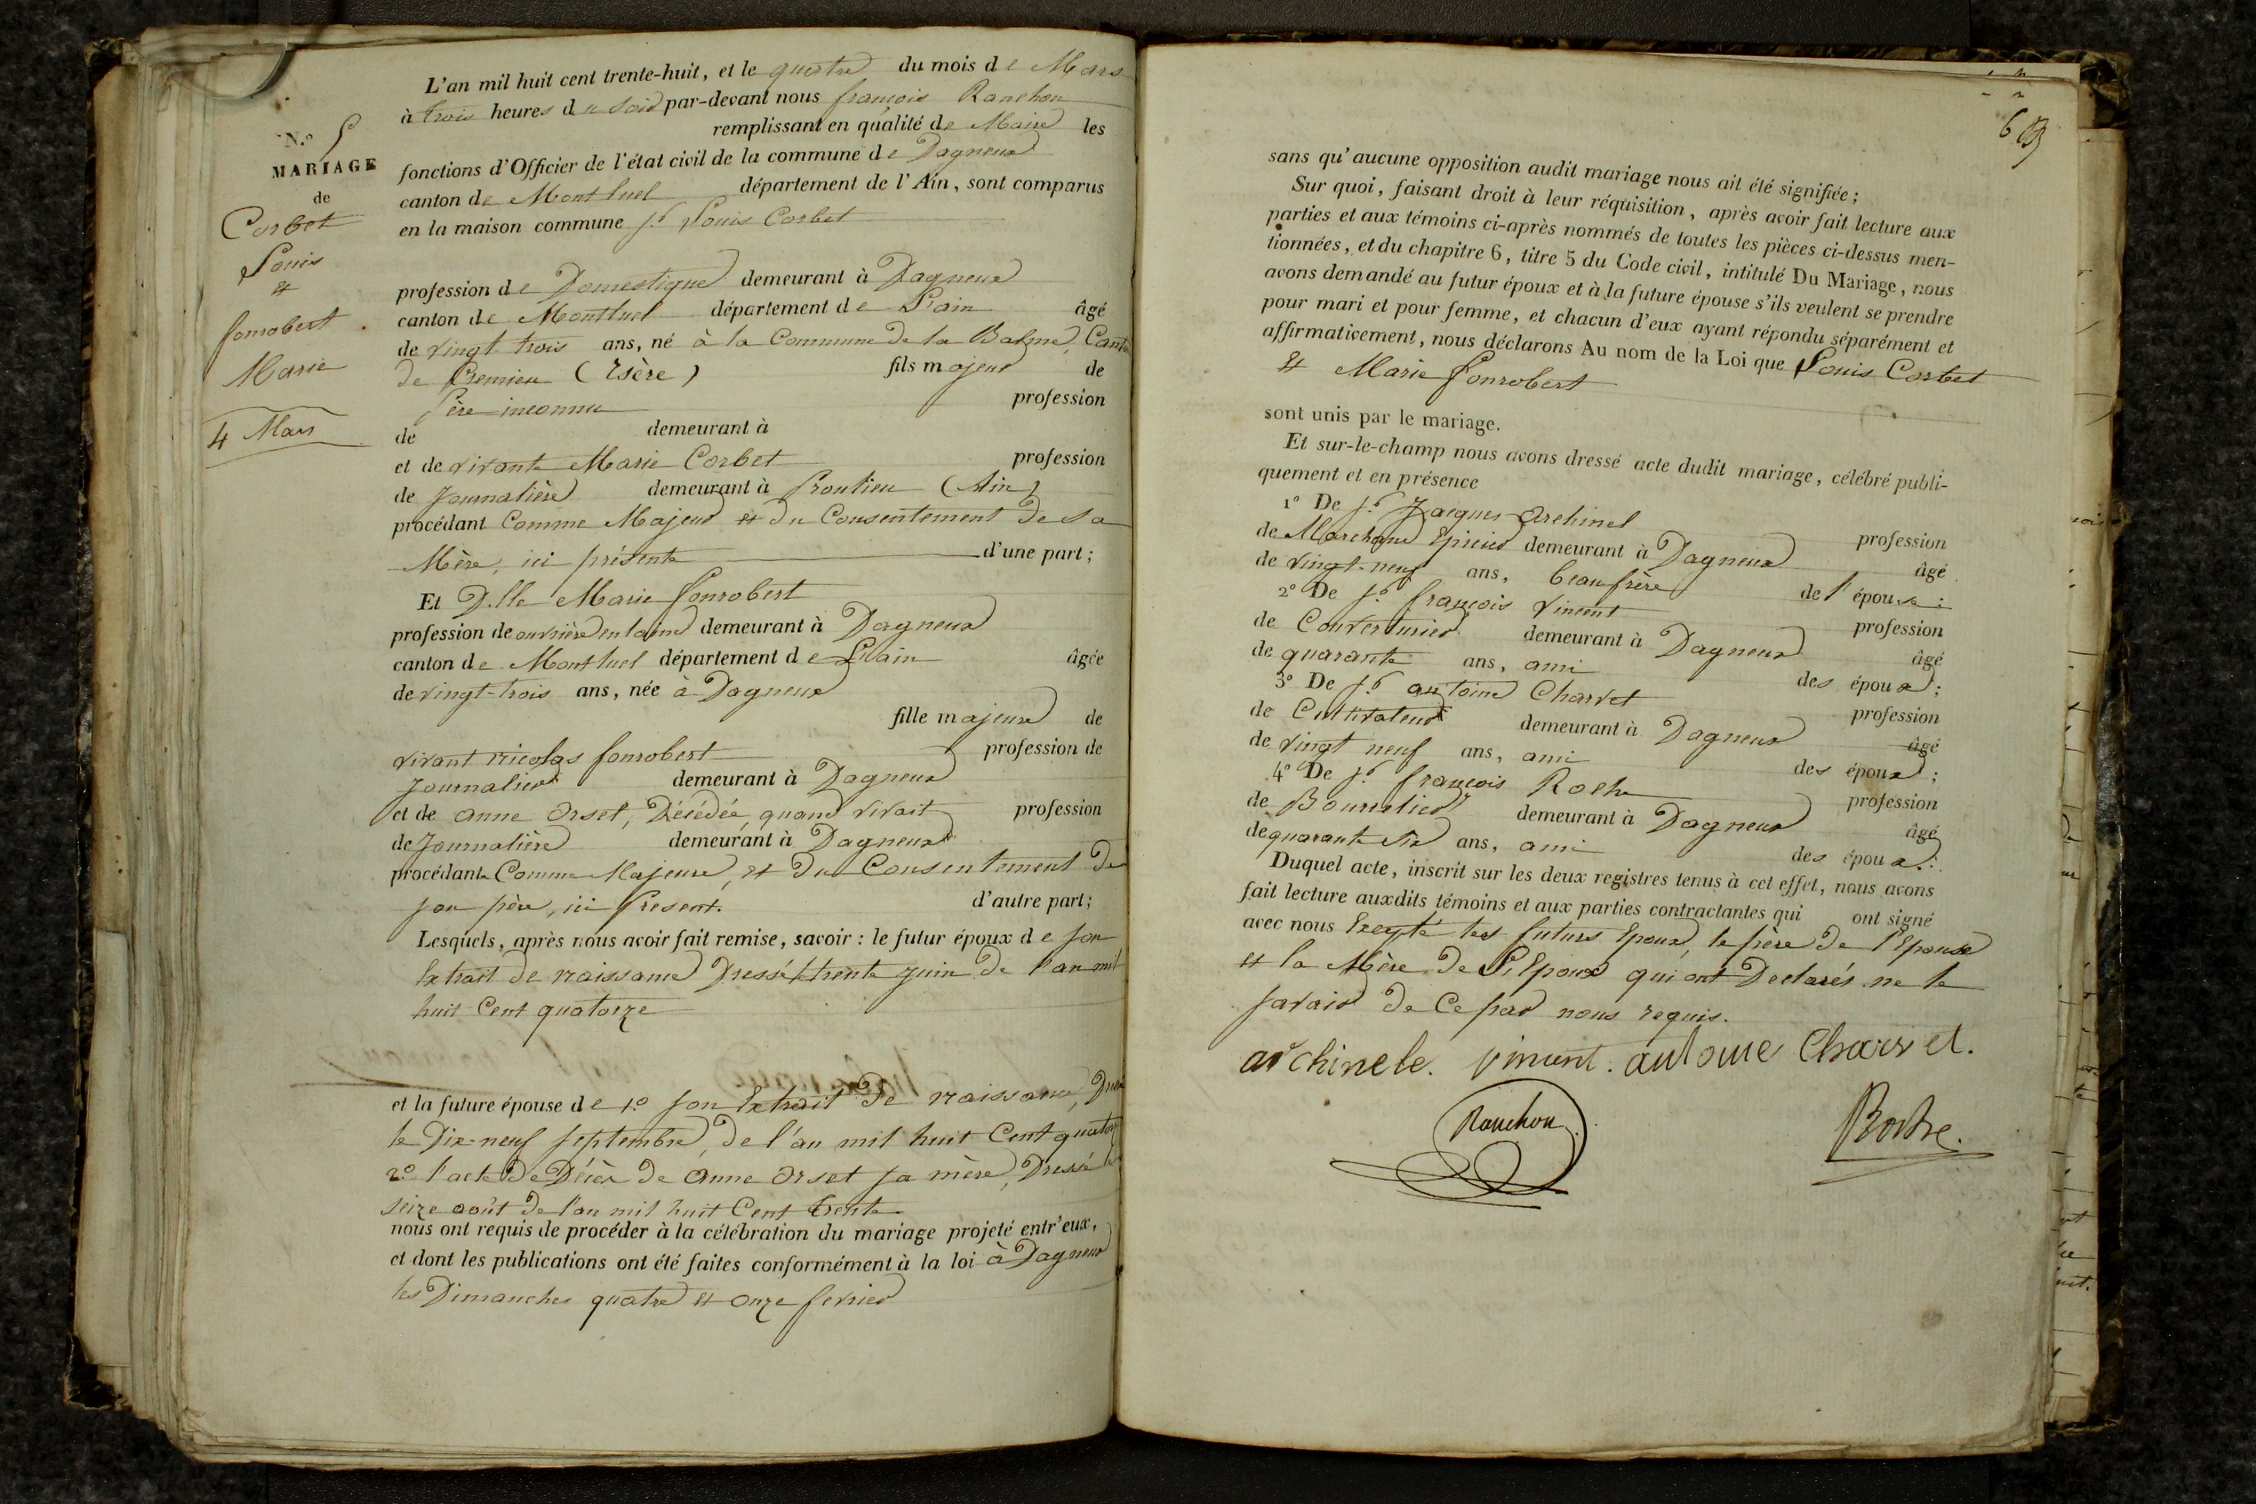 N.o 5
MARIAGE
de
Corbet
Louis
et
fonrobert
Marie
4 Mars
L'an mil huit cent trente-huit, et le quatre du mois de Mars
à trois heures du soir par-devant nous françois Ranchon
remplissant en qualité de Maire les
fonctions d'Officier de l'état civil de la commune de Dagneux
canton de Montluel département de l'Ain, sont comparus
en la maison commune s.r Louis Corbet
profession de Domestique demeurant à Dagneux
canton de Montluel département de L'ain âgé
de vingt trois ans, né à la Commune de la Balme, Canton
de Cremieu (Isère) fils majeur de
Père inconnu profession
de demeurant à
et de vivante Marie Corbet profession
de Journalière demeurant à Proulieu (Ain)
procédant Comme Majeur et du Consentement de sa
Mère, ici présente d'une part;
Et D.lle Marie fonrobert
profession de ouvrière en laine demeurant à Dagneux
canton de Montluel département de L'ain âgée
de vingt-trois ans, née à Dagneux
fille majeure de
vivant nicolas fonrobert profession de
Journalier demeurant à Dagneux
et de anne Orset, Décédée, quand vivait profession
de Journalière demeurant à Dagneux
procédante Comme Majeure, et du Consentement de
son père, ici présent. d'autre part;
Lesquels, après nous avoir fait remise, savoir : le futur époux de son
Extrait de naissance Dressé le trente juin de l'an mil
huit Cent quatorze
et la future épouse de 1.o son Extrait de naissance,
le Dix-neuf septembre, de l'an mil huit Cent
2.o l'acte de Décès de anne Orset sa mère, Dressé le
seize août de l'an mil huit Cent trente
nous ont requis de procéder à la célébration du mariage projeté entr'eux,
et dont les publications ont été faites conformément à la loi à Dagneux
les Dimanches quatre et onze fevrier
6
sans qu'aucune opposition audit mariage nous ait été signifiée;
Sur quoi, faisant droit à leur réquisition, après avoir fait lecture aux
parties et aux témoins ci-après nommés de toutes les pièces ci-dessus men-
tionnées, et du chapitre 6, titre 5 du Code civil, intitulé Du Mariage, nous
avons demandé au futur époux et à la future épouse s'ils veulent se prendre
pour mari et pour femme, et chacun d'eux ayant répondu séparément et
affirmativement, nous déclarons Au nom de la Loi que Louis Corbet
et Marie fonrobert
sont unis par le mariage.
Et sur-le-champ nous avons dressé acte dudit mariage, célébré publi-
quement et en présence
1o De s.r Jacques Archinel profession
de Marchand Epicier demeurant à Dagneux âgé
de vingt-neuf ans, beaufrère de l'épouse;
2o De s.r françois vincent profession
de Couverturier demeurant à Dagneux âgé
de quarante ans, ami des époux;
3o De s.r antoine Charvet profession
de Cultivateur demeurant à Dagneux âgé
de vingt neuf ans, ami des époux;
4o De s.r françois Roche profession
de Bourrelier demeurant à Dagneux âgé
de quarante six ans, ami des époux.
Duquel acte, inscrit sur les deux registres tenus à cet effet, nous avons
fait lecture auxdits témoins et aux parties contractantes qui ont signé
avec nous Excepté les futurs Epoux, le père de l'Epouse
et la Mère de L'Epoux qui ont Declarés ne le
savoir de Ce par nous requis.
archinele. vincent. antoine Charvet.
Ranchon
Roche.